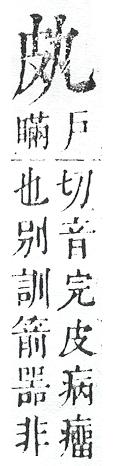 戶
瞞
切音完皮病瘤
也別訓箭器非